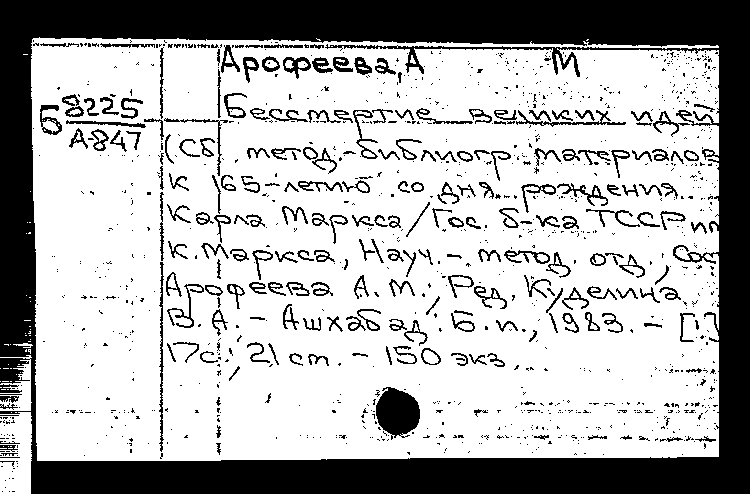 Арофеева, А М
Б 8225 Бессмертие великих идей
А-847
(Сб метод.-библиогр. материалов
к 165-летию со дня рождения
Карла Маркса / Гос. б-ка ТССР им
К. Маркса, Науч.-метод. отд.; Сос
Арофеева А.М.; Ред. Куделина
В.А. - Ашхабад: Б.и., 1983. - [1]
17с.; 21 ст. - 150 экз.